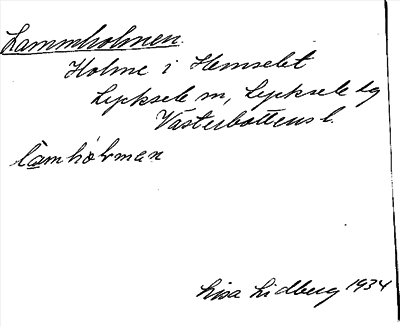 Lammholmen.
Holme i Hemselet
Lycksele sn, Lycksele lg
Västerbottens l.
låmhòlman
Lisa Lidberg 1934